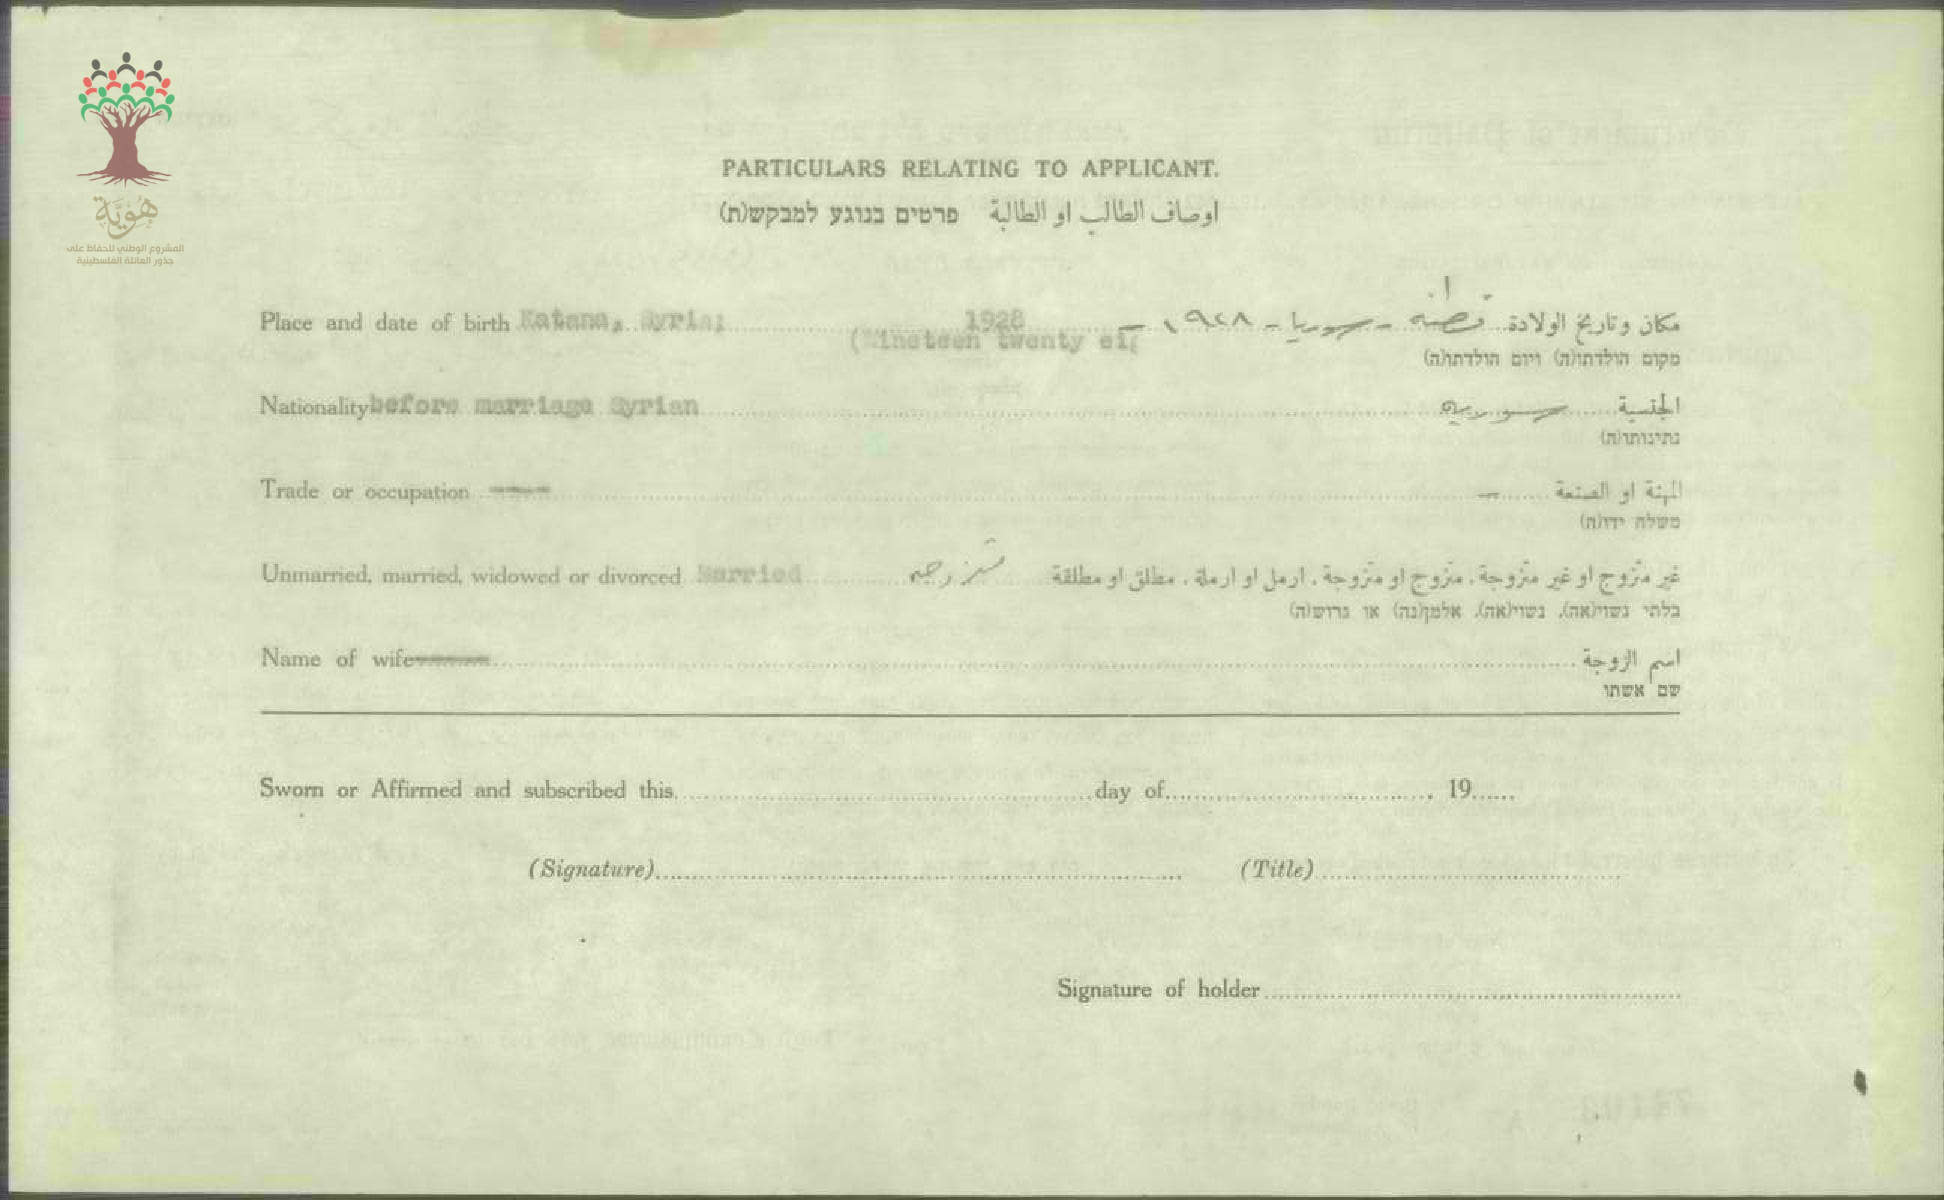 هُوِيَّة
المشروع الوطني للحفاظ على
جذور العائلة الفلسطينية
PARTICULARS RELATING TO APPLICANT.
اوصاف الطالب او الطالبة פרטים בנוגע למבקש(ת)
Place and date of birth Katana, Syria; 1928 قطنه - سوريا - ١٩٢٨ - مكان وتاريخ الولادة
(Nineteen twenty ei
מקום הולדתו(ה) ויום הולדתו(ה)
Nationality before marriage Syrian سوريه الجنسية
נתינותו(ה)
Trade or occupation ---- — المهنة او الصنعة
משלח ידו(ה)
Unmarried, married, widowed or divorced Married متزوجه غير متزوج او غير متزوجة، متزوج او متزوجة، ارمل او ارملة، مطلق او مطلقة
בלתי נשוי(אה), נשוי(אה), אלמן(נה) או גרוש(ה)
Name of wife ------ اسم الزوجة
שם אשתו
Sworn or Affirmed and subscribed this day of 19
(Signature) (Title)
Signature of holder